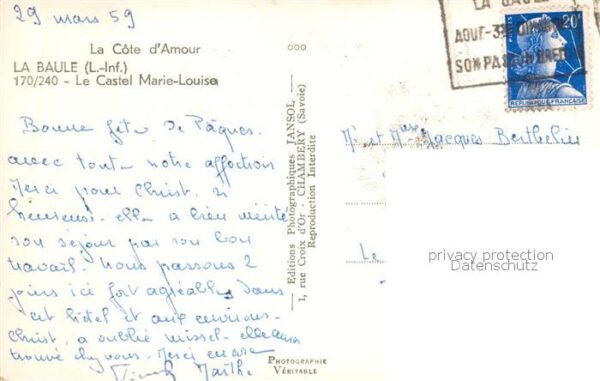 29 mars 59
La Côte d'Amour
LA BAULE (L.-Inf.)
170/240 - Le Castel Marie-Louise
Bonne fête de Pâques
avec toute notre affection
Merci pour Christ. si
heureuse. elle a bien mérité
son séjour par son bon
travail. Nous passons 2
jours ici fort agréables dans
cet hôtel et aux environs.
Christ. a oublié missel. elle aura
trouvé chez vous. Merci encore
Marthe
ooo
Editions Photographiques JANSOL
1, rue Croix d'Or - CHAMBÉRY (Savoie)
Reproduction Interdite
PHOTOGRAPHIE
VÉRITABLE
LA BAULE
SON PA
POSTES
20F
REPUBLIQUE FRANÇAISE
Mr et Mme Jacques Berthelier
Le
privacy protection
Datenschutz